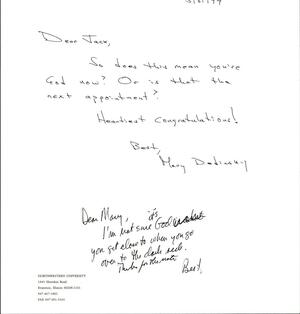 Dear Jack,
So does this mean you're
God now? Or is that the
next appointment?
Heartiest Congratulations!
Best,
Mary Dedinsky
Dear Mary,
it's
I'm not sure God
you get close to when you go
over to the dark side.
Thanks for the note
Best,
NORTHWESTERN UNIVERSITY
1845 Sheridan Road
Evanston, Illinois